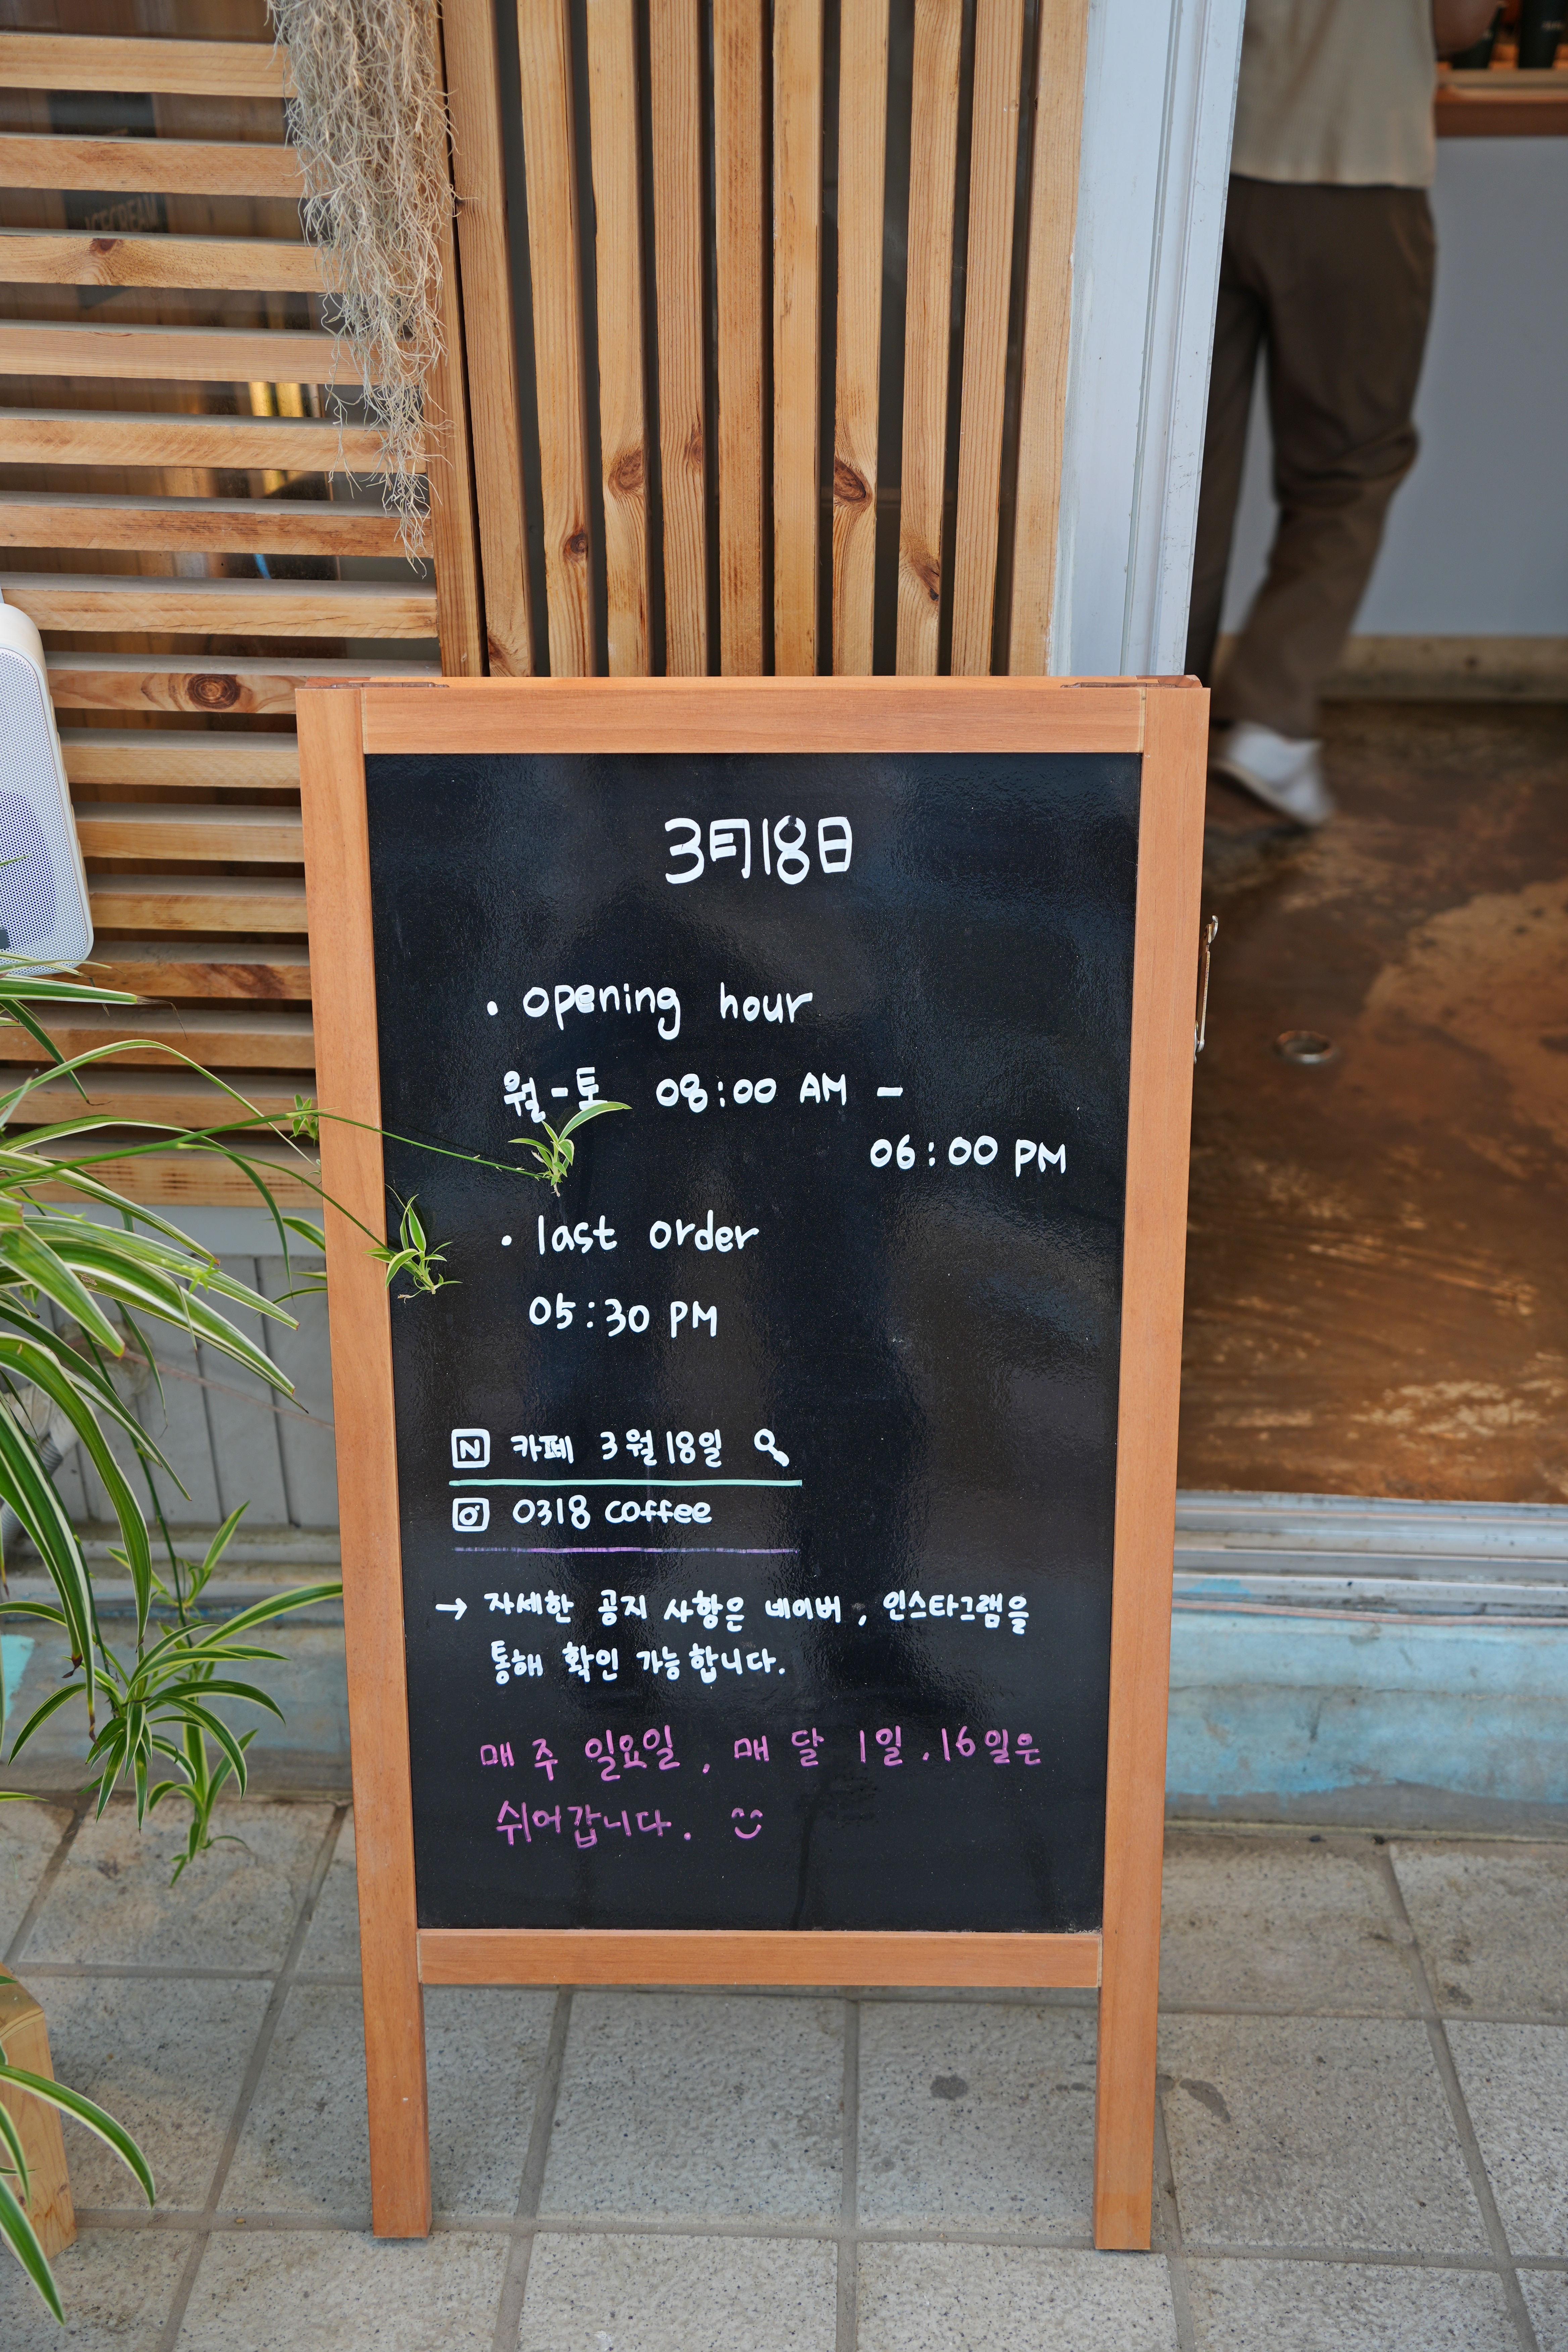 ICECREAM
3月18日
· opening hour
월-토 08:00 AM -
06:00 PM
· last order
05:30 PM
N 카페 3월18일
0318 coffee
→ 자세한 공지 사항은 네이버, 인스타그램을
통해 확인 가능합니다.
매주 일요일, 매달 1일.16일은
쉬어갑니다.